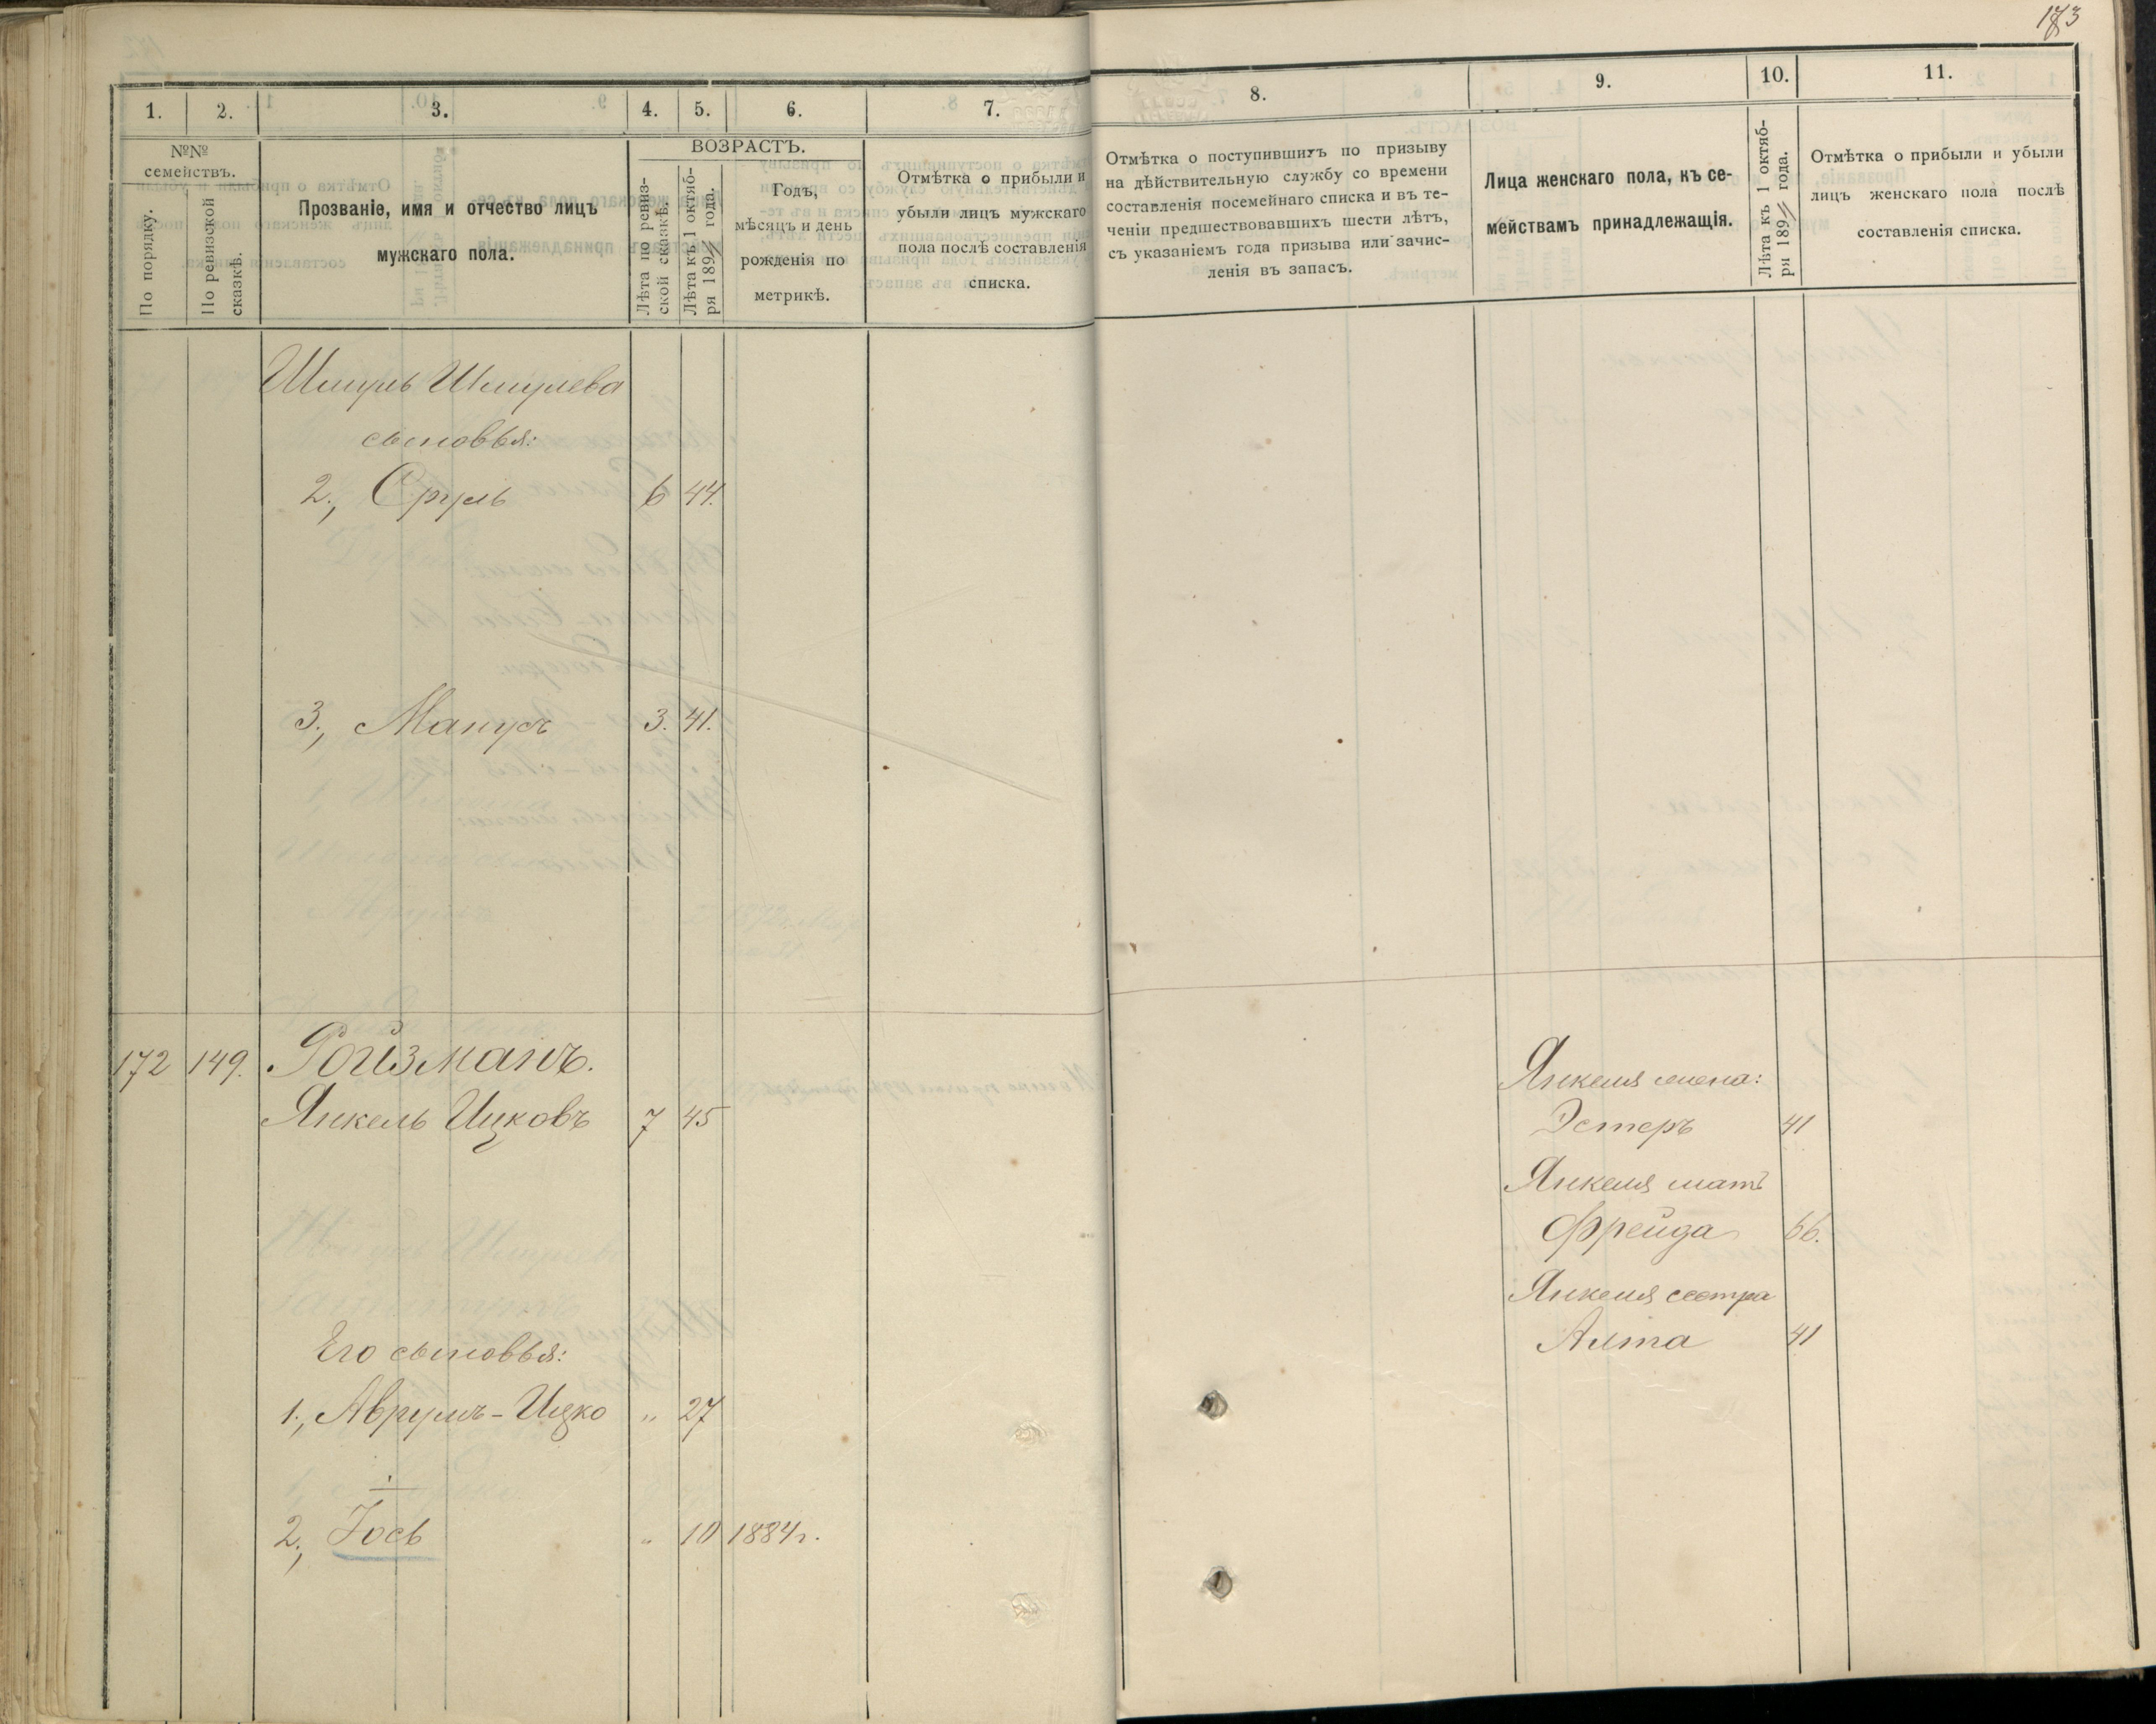 173
1. 2. 3. 4. 5. 6. 7. 8. 9. 10. 11.
№№
семействъ.
По порядку.
По ревизской
сказкѣ.
Прозваніе, имя и отчество лицъ
мужскаго пола.
ВОЗРАСТЪ.
Лѣта по ревиз-
ской сказкѣ.
Лѣта къ 1 октяб-
ря 189 года.
Годъ,
мѣсяцъ и день
рожденія по
метрикѣ.
Отмѣтка о прибыли и
убыли лицъ мужскаго
пола послѣ составленія
списка.
Отмѣтка о поступившихъ по призыву
на дѣйствительную службу со времени
составленія посемейнаго списка и въ те-
ченіи предшествовавшихъ шести лѣтъ,
съ указаніемъ года призыва или зачис-
ленія въ запасъ.
Лица женскаго пола, къ се-
мействамъ принадлежащія.
Лѣта къ 1 октяб-
ря 189 года.
Отмѣтка о прибыли и убыли
лицъ женскаго пола послѣ
составленія списка.
Шмуль Шмулева
сыновья:
2., Сруль 6 44.
3., Манусъ 3. 41.
172 149. Ройзманъ.
Янкель Ицковъ 7 45
Его сыновья:
1., Аврумъ-Ицко „ 27
2., Іось „ 10 1884 г.
Янкеля жена:
Эстеръ 41
Янкеля мать
Фрейда 66.
Янкеля сестра
Алта 41